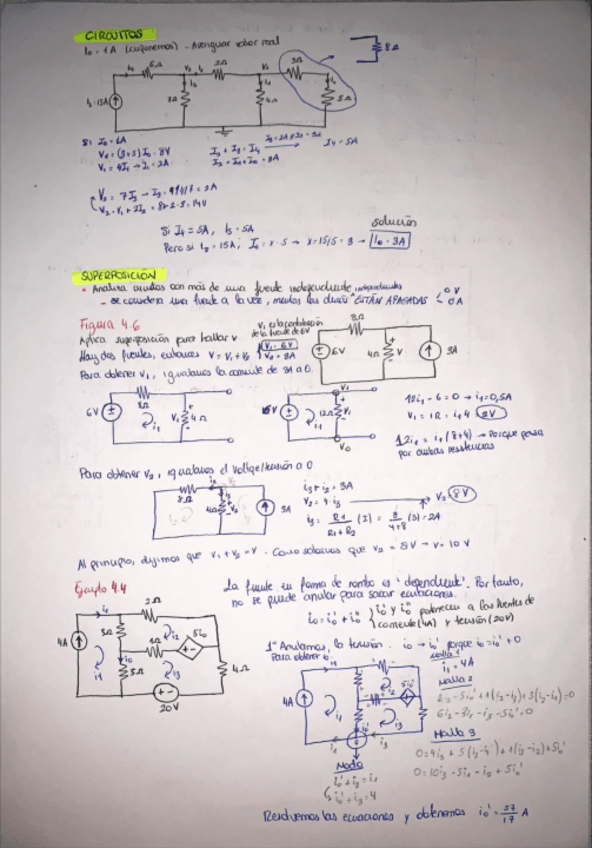 CIRCUITOS
I₀ = 1A (suponemos) - Averiguar valor real
8Ω
6Ω
2Ω
3Ω
I₂=15A
8Ω
4Ω
5Ω
Si I₀ = 1A
V₁ = (3+5)I₀ = 8V
V₁ = 4I₁ → I₁ = 2A
I₂ = I₁ + I₀ = 3A
I₄ = 5A
V₂ = 7I₃ → I₃ = 14/7 = 2A
V₂ = V₁ + 2I₂ = 8+2·3 = 14V
Si I₄ = 5A, Is = 5A
solución
Pero si Is = 15A, I₀ = x·5 → x = 15/5 = 3 → I₀ = 3A
SUPERPOSICIÓN
Analiza circuitos con más de una fuente independiente
- se considera una fuente a la vez, mientras las demás ESTÁN APAGADAS
0V
0A
Figura 4.6
Aplica superposición para hallar v
V₁ es la contribución
de la fuente de 6V
Hay dos fuentes, entonces v = v₁ + v₂
V₁ = 6V
V₂ = 3A
8Ω
6V
4Ω
V
3A
Para obtener v₁, igualamos la corriente de 3A a 0
6V
8Ω
i₁
V₁
4Ω
6V
12Ω
V₁
i₁
V₀
12i₁ - 6 = 0 → i₁ = 0,5A
V₁ = IR = i₁·4 2V
12i₁ = i₁(8+4) → Porque pasa
por ambas resistencias
Para obtener v₂, igualamos el voltaje/tensión a 0
8Ω
4Ω
V₂
3A
i₃ + i₂ = 3A
V₂ = 4·i₃
V₂ 8V
i₃ = R1/(R1+R2) (I) = 8/(4+8) (3) = 2A
Al principio, dijimos que v₁ + v₂ = v. Como sabemos que v₂ = 8V → v = 10V
Ejemplo 4.4
2Ω
4A
3Ω
1Ω
5i₀
i₁
i₂
i₀
5Ω
i₃
4Ω
20V
La fuente en forma de rombo es 'dependiente'. Por tanto,
no se puede anular para sacar ecuaciones.
i₀ = i₀' + i₀'' i₀' y i₀'' pertenecen a las fuentes de
corriente (4A) y tensión (20V)
1º Anulamos la tensión. i₀ → i₀' porque i₀ = i₀' + 0
Para obtener i₀
4A
i₁
i₂
i₃
Malla 1
i₁ = 4A
Malla 2
2i₂ - 5i₀' + 1(i₂-i₃) + 3(i₂-i₁) = 0
6i₂ - 3i₁ - i₃ - 5i₀' = 0
Malla 3
0 = 4i₃ + 5(i₃-i₁) + 1(i₃-i₂) + 5i₀'
0 = 10i₃ - 5i₁ - i₂ + 5i₀'
Nodo
i₀' + i₃ = i₁
i₀' + i₃ = 4
Resolvemos las ecuaciones y obtenemos i₀' = 52/17 A